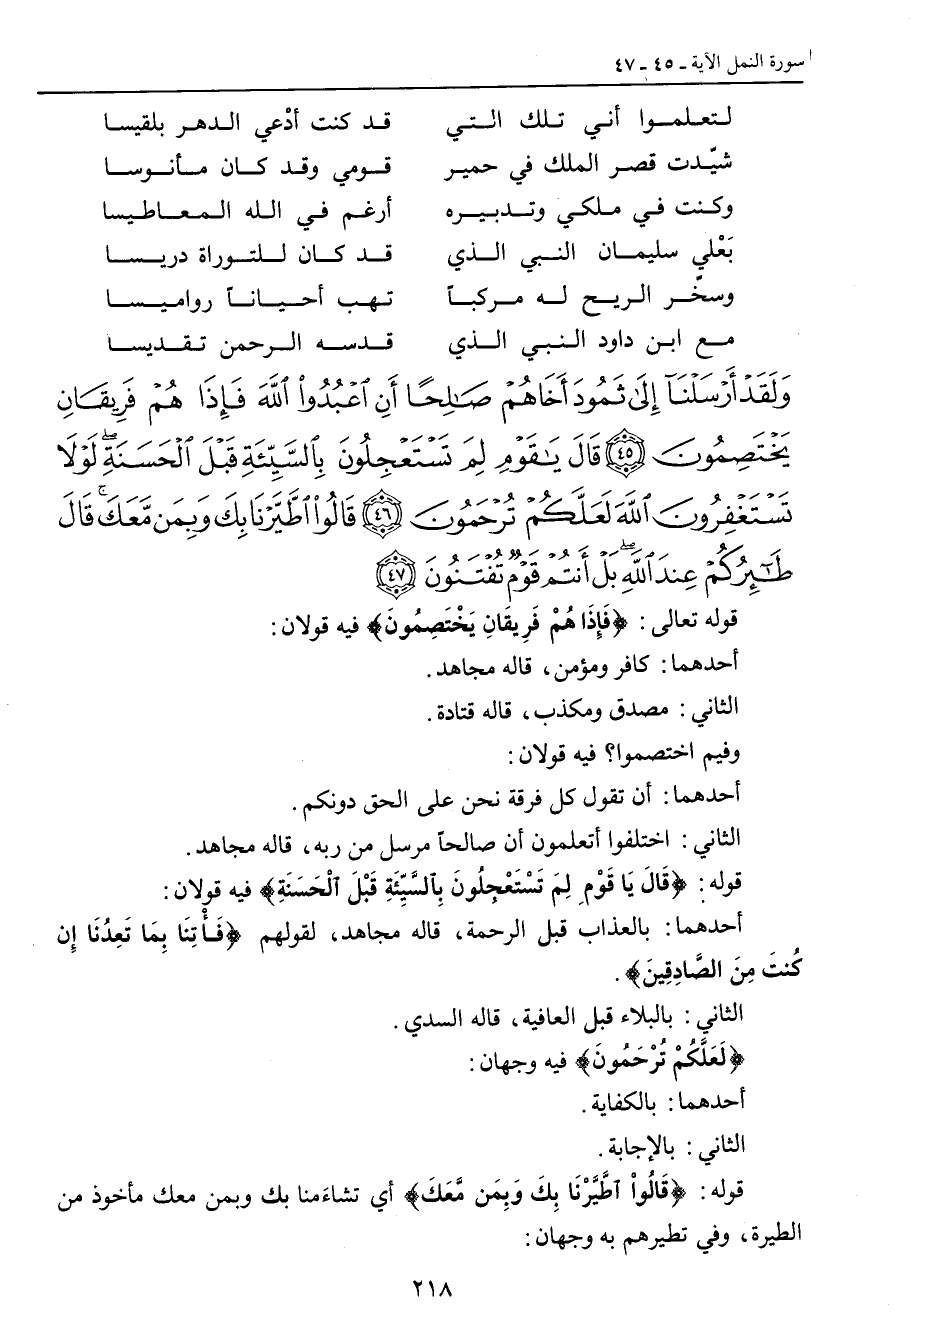 سورة النمل الآية ـ ٤٥ ـ ٤٧
لتعلموا أني تلك التي قد كنت أدْعي الدهر بلقيسا
شيّدت قصر الملك في حمير قومي وقد كان مأنوسا
وكنت في ملكي وتدبيره أرغم في الله المعاطيسا
بَعْلي سليمان النبي الذي قد كان للتوراة دريسا
وسخّر الريح له مركباً تهب أحياناً رواميسا
مع ابن داود النبي الذي قدسه الرحمن تقديسا
وَلَقَدْ أَرْسَلْنَآ إِلَىٰ ثَمُودَ أَخَاهُمْ صَـٰلِحًا أَنِ ٱعْبُدُوا۟ ٱللَّهَ فَإِذَا هُمْ فَرِيقَانِ
يَخْتَصِمُونَ ﴿٤٥﴾ قَالَ يَـٰقَوْمِ لِمَ تَسْتَعْجِلُونَ بِٱلسَّيِّئَةِ قَبْلَ ٱلْحَسَنَةِ ۖ لَوْلَا
تَسْتَغْفِرُونَ ٱللَّهَ لَعَلَّكُمْ تُرْحَمُونَ ﴿٤٦﴾ قَالُوا۟ ٱطَّيَّرْنَا بِكَ وَبِمَن مَّعَكَ ۚ قَالَ
طَـٰٓئِرُكُمْ عِندَ ٱللَّهِ ۖ بَلْ أَنتُمْ قَوْمٌ تُفْتَنُونَ ﴿٤٧﴾
قوله تعالى: ﴿فَإِذَا هُمْ فَرِيقَانِ يَخْتَصِمُونَ﴾ فيه قولان:
أحدهما: كافر ومؤمن، قاله مجاهد.
الثاني: مصدق ومكذب، قاله قتادة.
وفيم اختصموا؟ فيه قولان:
أحدهما: أن تقول كل فرقة نحن على الحق دونكم.
الثاني: اختلفوا أتعلمون أن صالحاً مرسل من ربه، قاله مجاهد.
قوله: ﴿قَالَ يَا قَوْمِ لِمَ تَسْتَعْجِلُونَ بِٱلسَّيِّئَةِ قَبْلَ ٱلْحَسَنَةِ﴾ فيه قولان:
أحدهما: بالعذاب قبل الرحمة، قاله مجاهد، لقولهم ﴿فَأْتِنَا بِمَا تَعِدُنَا إِن
كُنتَ مِنَ الصَّادِقِينَ﴾.
الثاني: بالبلاء قبل العافية، قاله السدي.
﴿لَعَلَّكُمْ تُرْحَمُونَ﴾ فيه وجهان:
أحدهما: بالكفاية.
الثاني: بالإجابة.
قوله: ﴿قَالُواْ ٱطَّيَّرْنَا بِكَ وَبِمَن مَّعَكَ﴾ أي تشاءمنا بك وبمن معك مأخوذ من
الطيرة، وفي تطيرهم به وجهان:
٢١٨